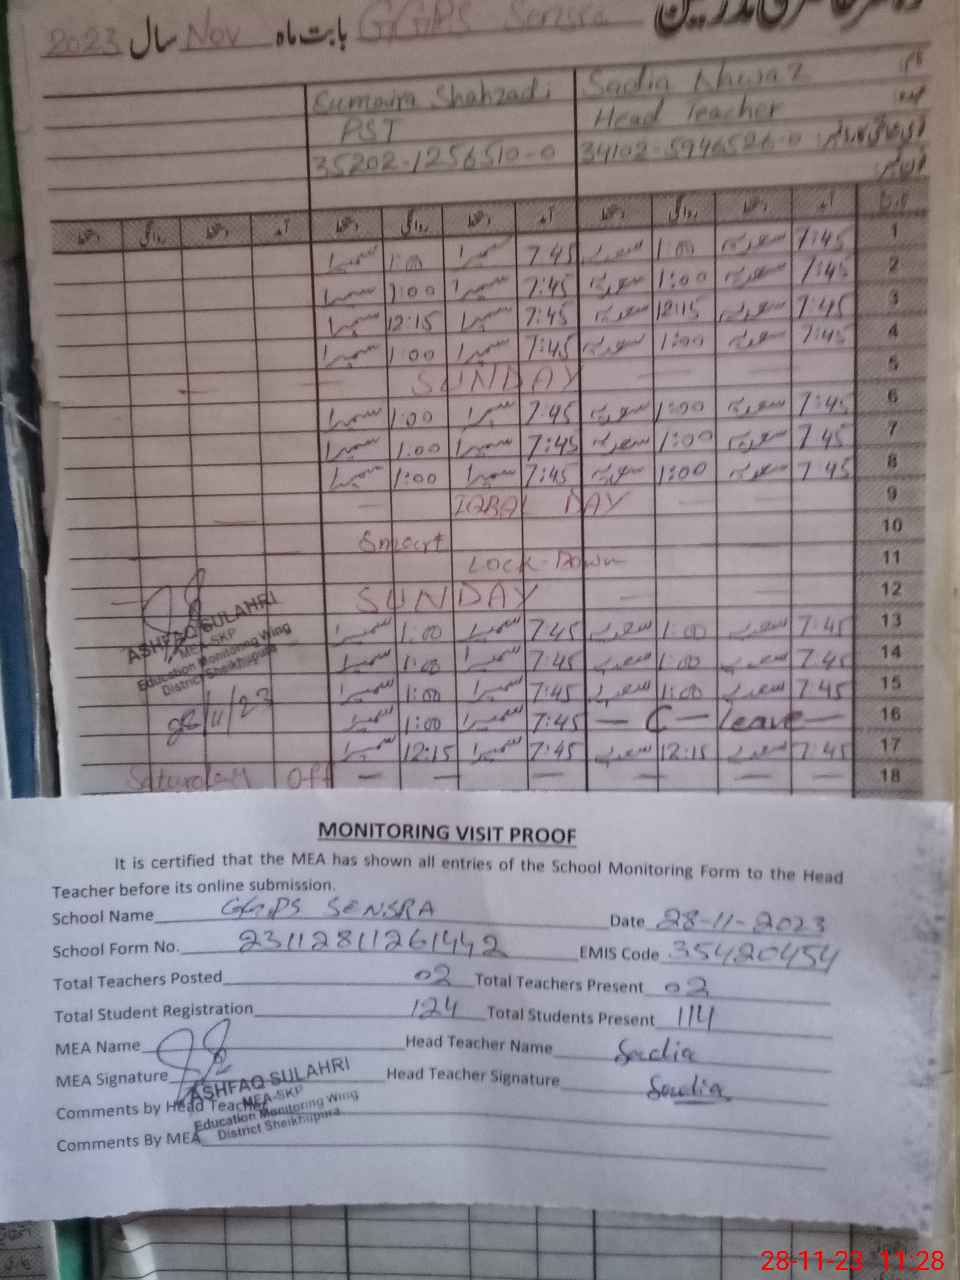 2023 سال Nov بابت ماہ GGPS Sensra
نام Sadia Nawaz Sumaira Shahzadi
عہدہ Head Teacher PST
34102-5946526-0 35202-1256510-0
تاریخ آمد دستخط روانگی دستخط آمد دستخط روانگی دستخط آمد دستخط روانگی دستخط
1 7:45 سعدیہ 1:00 سعدیہ 7:45 سمیرا 1:00 سمیرا
2 7:45 سعدیہ 1:00 سعدیہ 7:45 سمیرا 1:00 سمیرا
3 7:45 سعدیہ 12:15 سعدیہ 7:45 سمیرا 12:15 سمیرا
4 7:45 سعدیہ 1:00 سعدیہ 7:45 سمیرا 1:00 سمیرا
5 SUNDAY
6 7:45 سعدیہ 1:00 سعدیہ 7:45 سمیرا 1:00 سمیرا
7 7:45 سعدیہ 1:00 سعدیہ 7:45 سمیرا 1:00 سمیرا
8 7:45 سعدیہ 1:00 سعدیہ 7:45 سمیرا 1:00 سمیرا
9 IQBAL DAY
10 Smart
11 Lock-Down
12 SUNDAY
13 7:45 سعدیہ 1:00 سعدیہ 7:45 سمیرا 1:00 سمیرا
14 7:45 سعدیہ 1:00 سعدیہ 7:45 سمیرا 1:00 سمیرا
15 7:45 سعدیہ 1:00 سعدیہ 7:45 سمیرا 1:00 سمیرا
16 — C — leave — 7:45 سمیرا 1:00 سمیرا
17 7:45 سعدیہ 12:15 سعدیہ 7:45 سمیرا 12:15 سمیرا
18 Saturday Off
ASHFAQ SULAHRI
MEA-SKP
Education Monitoring Wing
District Sheikhupura
28/11/23
MONITORING VISIT PROOF
It is certified that the MEA has shown all entries of the School Monitoring Form to the Head
Teacher before its online submission.
School Name GGPS SENSRA Date 28-11-2023
School Form No. 23112811261442 EMIS Code 35420454
Total Teachers Posted 02 Total Teachers Present 02
Total Student Registration 124 Total Students Present 114
MEA Name Head Teacher Name Sadia
MEA Signature Head Teacher Signature Sadia
Comments by Head Teacher
Comments By MEA
ASHFAQ SULAHRI
MEA-SKP
Education Monitoring Wing
District Sheikhupura
28-11-23 11:28